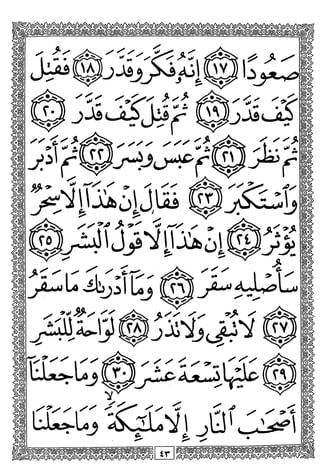 صَعُودًا ﴿١٧﴾ إِنَّهُۥ فَكَّرَ وَقَدَّرَ ﴿١٨﴾ فَقُتِلَ
كَيْفَ قَدَّرَ ﴿١٩﴾ ثُمَّ قُتِلَ كَيْفَ قَدَّرَ ﴿٢٠﴾
ثُمَّ نَظَرَ ﴿٢١﴾ ثُمَّ عَبَسَ وَبَسَرَ ﴿٢٢﴾ ثُمَّ أَدْبَرَ
وَٱسْتَكْبَرَ ﴿٢٣﴾ فَقَالَ إِنْ هَٰذَآ إِلَّا سِحْرٌ
يُؤْثَرُ ﴿٢٤﴾ إِنْ هَٰذَآ إِلَّا قَوْلُ ٱلْبَشَرِ ﴿٢٥﴾
سَأُصْلِيهِ سَقَرَ ﴿٢٦﴾ وَمَآ أَدْرَىٰكَ مَا سَقَرُ
﴿٢٧﴾ لَا تُبْقِى وَلَا تَذَرُ ﴿٢٨﴾ لَوَّاحَةٌ لِّلْبَشَرِ
﴿٢٩﴾ عَلَيْهَا تِسْعَةَ عَشَرَ ﴿٣٠﴾ وَمَا جَعَلْنَآ
أَصْحَٰبَ ٱلنَّارِ إِلَّا مَلَٰٓئِكَةً ۙ وَمَا جَعَلْنَا
٤٣